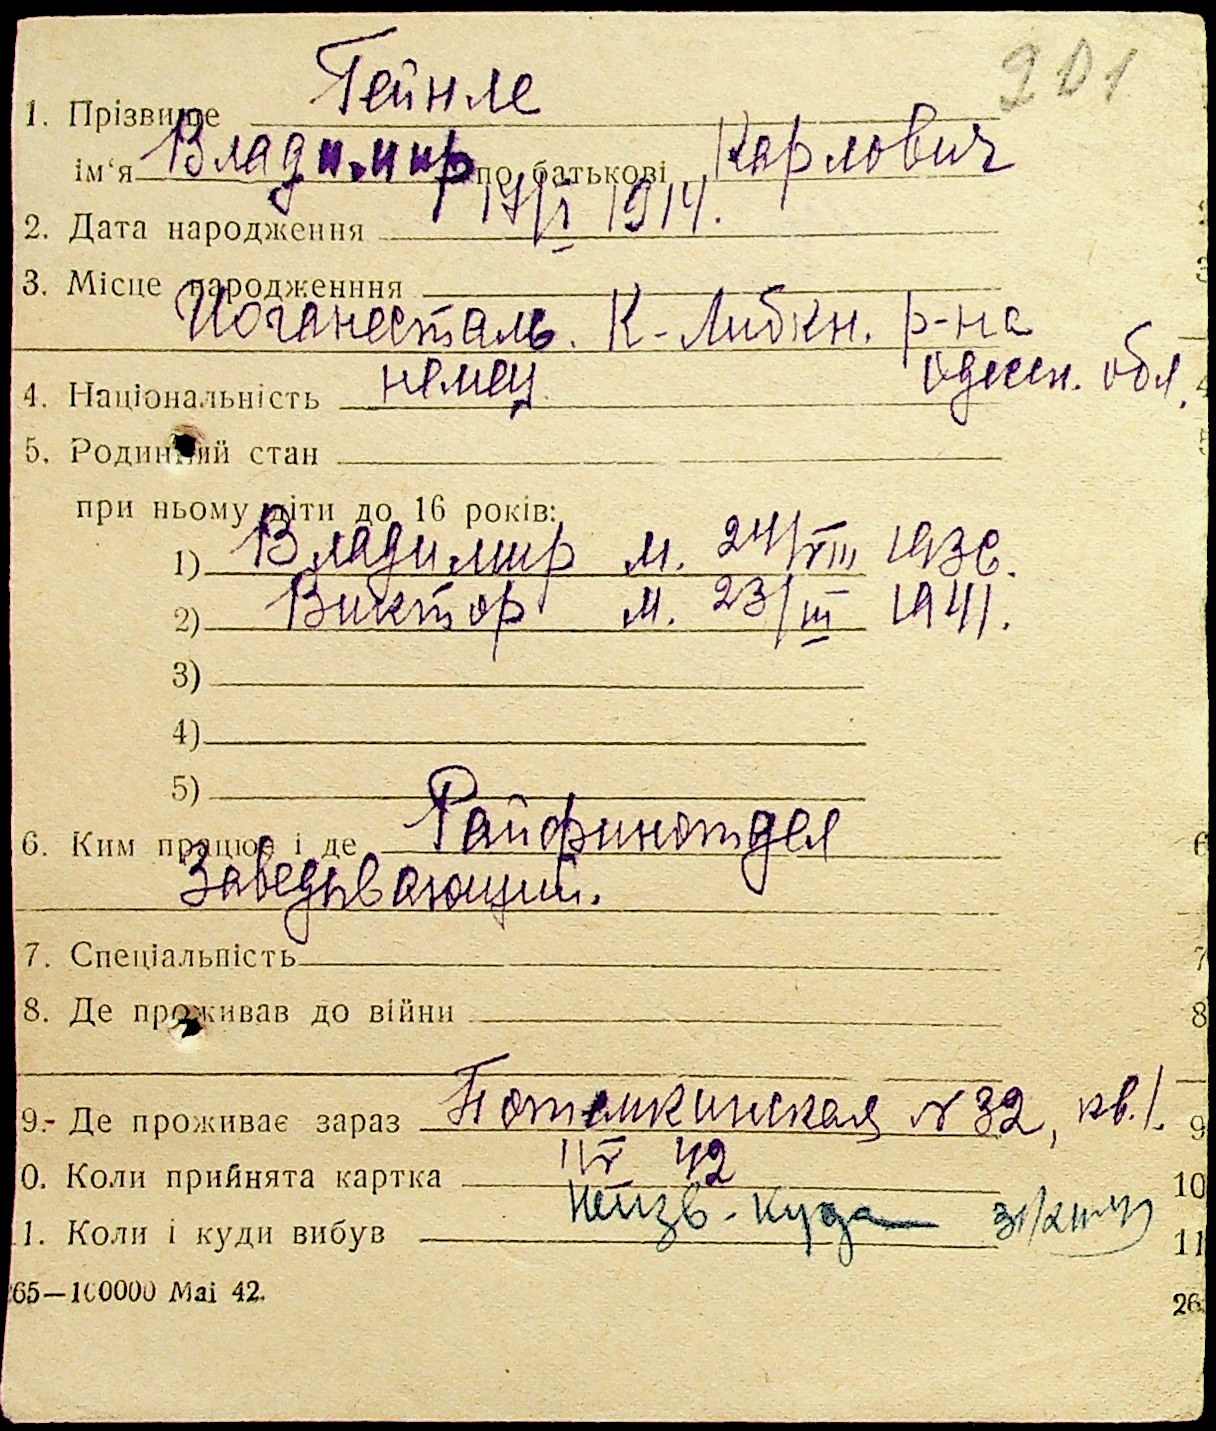 201
1. Прізвище Гейнле
ім'я Владимир по батькові Карлович
2. Дата народження 17/I 1914.
3. Місце народженння
Иоганесталь. К-Либкн. р-на
одесск. обл.
4. Національність немец
5. Родинний стан
при ньому діти до 16 років:
1) Владимир м. 24/VIII 1936.
2) Виктор м. 23/III 1941.
3)
4)
5)
6. Ким працює і де Райфинотдел
Заведывающий.
7. Спеціальність
8. Де проживав до війни
9.- Де проживає зараз Потемкинская № 32, кв. 1.
0. Коли прийнята картка 42
1. Коли і куди вибув Неизв. куда
65—100000 Mai 42.
3
4
5
6
7
8
9
10
11
26